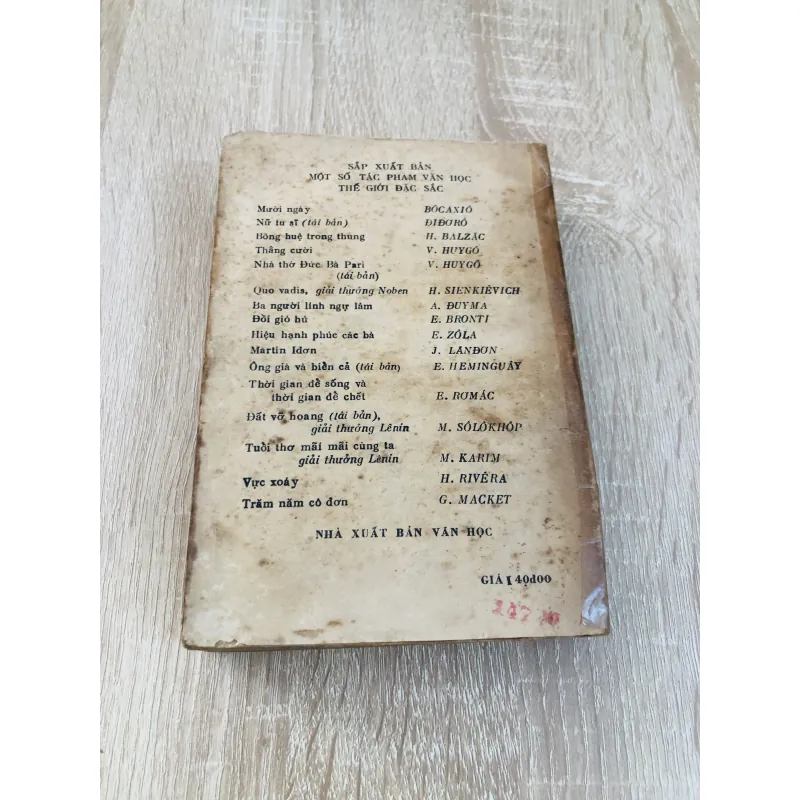 SẮP XUẤT BẢN
MỘT SỐ TÁC PHẨM VĂN HỌC
THẾ GIỚI ĐẶC SẮC
Mười ngày BÔCAXIÔ
Nữ tu sĩ (tái bản) ĐIĐƠRÔ
Bông huệ trong thung H. BALZĂC
Thằng cười V. HUYGÔ
Nhà thờ Đức Bà Pari V. HUYGÔ
(tái bản)
Quo vadis, giải thưởng Noben H. SIENKIÊVICH
Ba người lính ngự lâm A. ĐUYMA
Đồi gió hú E. BRONTI
Hiệu hạnh phúc các bà E. ZÔLA
Martin Iđơn J. LĂNĐƠN
Ông già và biển cả (tái bản) E. HEMINGUÂY
Thời gian để sống và
thời gian để chết E. RƠMÁC
Đất vỡ hoang (tái bản),
giải thưởng Lênin M. SÔLÔKHÔP
Tuổi thơ mãi mãi cùng ta
giải thưởng Lênin M. KARIM
Vực xoáy H. RIVÊRA
Trăm năm cô đơn G. MACKET
NHÀ XUẤT BẢN VĂN HỌC
GIÁ 140đ00